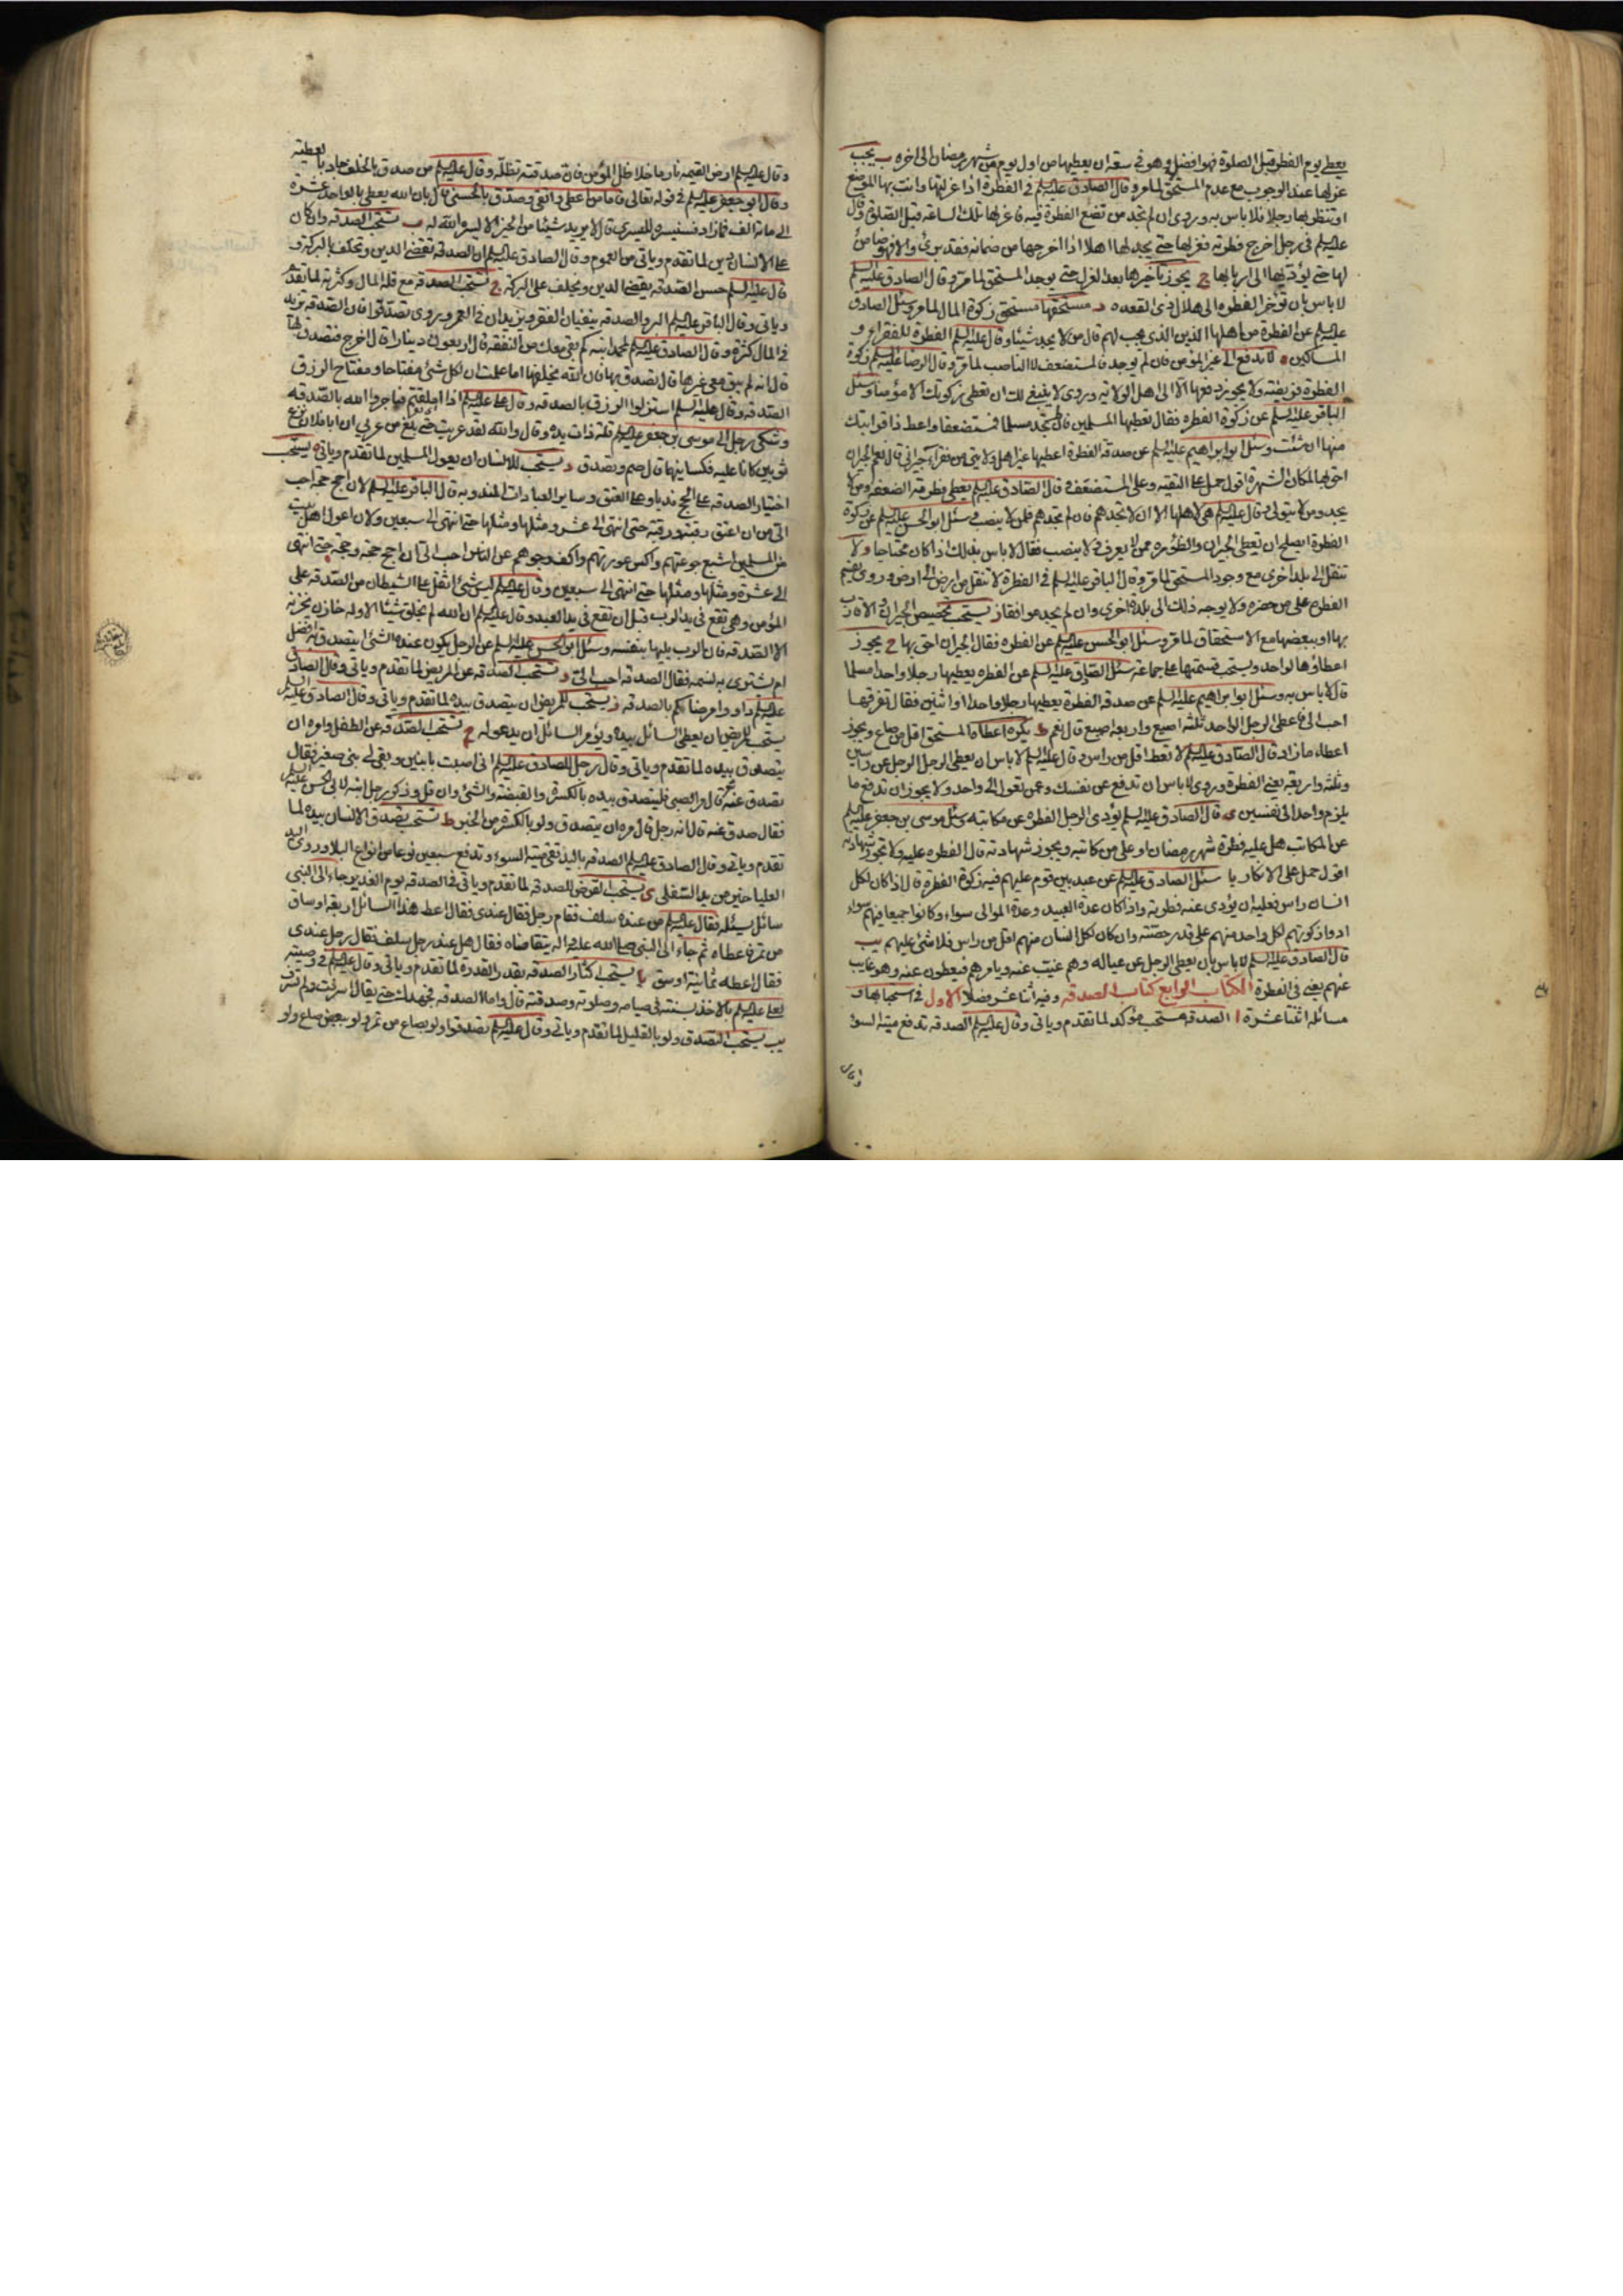 يعطى يوم الفطر قبل الصلوة فهو افضل وهو في سعة ان يعطيها من اول يوم من شهر رمضان الى اخره ب يجب
عزلها عند الوجوب مع عدم المستحق لما مر وقال الصادق عليه السلم في الفطرة اذا عزلتها وانت تطلب بها الموضع
او تنتظر بها رجلا فلا باس به وروى ان لم تجد من تضع الفطرة فيه فاعزلها تلك الساعة قبل الصلوة وقال
عليه السلم في رجل اخرج فطرته فعزلها حتى يجد لها اهلا اذا اخرجها من ضمانه فقد برئ والا فهو ضامن
لها حتى يؤديها الى اربابها ج يجوز تاخيرها بعد العزل حتى يوجد المستحق لما مر وقال الصادق عليه السلم
لا باس بان تؤخر الفطره الى هلال ذى القعده د مستحقها مستحق زكوة المال لما مر وسئل الصادق
عليه السلم عن الفطرة من اهلها الذين الذى يجب لهم قال من لا يجد شيئا وقال عليه السلم الفطرة للفقراء و
المساكين ه لا تدفع الى غير المؤمن فان لم يوجد فالمستضعف لا الناصب لما مر وقال الرضا عليه السلم زكوة
الفطرة فريضة ولا يجوز دفعها الا الى اهل الولاية وروى لا ينبغى لك ان تعطى زكوتك الا مؤمنا وسئل
الباقر عليه السلم عن زكوة الفطره فقال تعطيها المسلمين فان لم تجد مسلما فمستضعفا واعط ذا قرابتك
منها ان شئت وسئل ابو ابراهيم عليه السلم عن صدقة الفطرة اعطيها غير اهل ولايتى من فقراء جيرانى قال نعم الجيران
احق بها لمكان الشهرة اقول حمل على التقيه وعلى المستضعف و قال الصادق عليه السلم يعطى فطرته الضعفاء ومن لا
يجد ومن لا يتولى وقال عليه السلم هى لاهلها الا ان لا تجدهم فان لم تجدهم فلمن لا ينصب وسئل ابو الحسن عليه السلم عن زكوة
الفطرة ايصلح ان تعطى الجيران والظؤره ممن لا يعرف ولا ينصب فقال لا باس بذلك اذا كان محتاجا و لا
تنقل الى بلد اخرى مع وجود المستحق لما مر وقال الباقر عليه السلم في الفطرة لا تنقل من ارض الى ارض وروى يقسم
الفطره على من حضره ولا يوجه ذلك الى بلدة اخرى وان لم يجد موافقا ز يستحب تخصيص الجيران والاقارب
بها او ببعضها مع الاستحقاق لما مر وسئل ابو الحسن عليه السلم عن الفطره فقال الجيران احق بها ح يجوز
اعطاؤها لواحد ويستحب قسمتها على جماعة سئل الصادق عليه السلم عن الفطره يعطيها رجلا واحدا مسلما
قال لا باس به وسئل ابو ابراهيم عليه السلم عن صدقة الفطرة يعطيها رجلا واحدا او اثنين فقال تفرقها
احب الى فاعطى الرجل الواحد ثلثة اصيع واربعة اصيع قال نعم ط يكره اعطاء المستحق اقل من صاع ويجوز
اعطاء ما زاد قال الصادق عليه السلم لا تعط اقل من راس وقال عليه السلم لا باس ان يعطى الرجل الرجل عن راسين
وثلثة واربعة يعنى الفطرة وروى لا باس ان تدفع عن نفسك وعمن تعول الى واحد ولا يجوز ان تدفع ما
يلزم واحدا الى نفسين ى قال الصادق عليه السلم يؤدى الرجل الفطره عن مكاتبه وسئل موسى بن جعفر عليه السلم
عن المكاتب هل عليه فطرة شهر رمضان او على من كاتبه ويجوز شهادته قال الفطره عليه ولا تجوز شهادته
اقول حمل على الانكار يا سئل الصادق عليه السلم عن عبد بين قوم عليهم فيه زكوة الفطرة قال اذا كان لكل
انسان راس فعليه ان يؤدى عنه فطرته واذا كان عدة العبيد وعدة الموالى سواء وكانوا جميعا فيهم سواء
ادوا زكوتهم لكل واحد منهم على قدر حصته وان كان لكل انسان منهم اقل من راس فلا شئ عليهم يب
قال الصادق عليه السلم لا باس بان يعطى الرجل عن عياله وهم غيب عنه ويامرهم فيعطون عنه وهو غايب
عنهم يعنى في الفطرة الكتاب الرابع كتاب الصدقه وفيه اثنا عشر فصلا الاول في استحبابها و
مسائله اثنتا عشرة ا الصدقه مستحب مؤكد لما تقدم وياتى وقال عليه السلم الصدقه تدفع ميتة السوء
وقال
وقال عليه السلم ارض القيمه نار ما خلا ظل المؤمن فان صدقته تظله وقال عليه السلم من صدق بالخلف جاد بالعطية
وقال ابو جعفر عليه السلم في قوله تعالى فاما من اعطى واتقى وصدق بالحسنى قال بان الله يعطى بالواحد عشرة
الى مائة الف فما زاد فسنيسره لليسرى قال لا يريد شيئا من الخير الا يسره الله له ب تستحب الصدقه وان كان
على الانسان دين لما تقدم وياتى من العموم وقال الصادق عليه السلم ان الصدقة تقضى الدين وتخلف بالبركة و
قال عليه السلم حسن الصدقه يقضى الدين ويخلف على البركة ج تستحب الصدقه مع قلة المال وكثرته لما تقدم
وياتى وقال الباقر عليه السلم البر والصدقه ينفيان الفقر ويزيدان في العمر وروى تصدقوا فان الصدقه تزيد
في المال كثرة وقال الصادق عليه السلم لمحمد ابنه كم بقى معك من النفقه قال اربعون دينارا قال اخرج فتصدق بها
قال انه لم يبق معى غيرها قال تصدق بها فان الله يخلفها اما علمت ان لكل شئ مفتاحا ومفتاح الرزق
الصدقه وقال عليه السلم استنزلوا الرزق بالصدقه وقال على عليه السلم اذا املقتم فتاجروا الله بالصدقه
وشكى رجل الى موسى بن جعفر عليه السلم قلة ذات يده وقال والله لقد عريت حتى بلغ من عريى ان ابا فلان نزع
ثوبين كانا عليه فكسانيهما قال صم وتصدق د يستحب للانسان ان يعول المسلمين لما تقدم وياتى ه يستحب
اختيار الصدقه على الحج ندبا وعلى العتق وساير العبادات المندوبه قال الباقر عليه السلم لان احج حجة احب
الى من ان اعتق رقبة ورقبة حتى انتهى الى عشر ومثلها ومثلها حتى انتهى الى سبعين ولان اعول اهل بيت
من المسلمين اشبع جوعتهم واكسى عورتهم واكف وجوههم عن الناس احب الى ان احج حجة وحجة حتى انتهى
الى عشرة ومثلها ومثلها حتى انتهى الى سبعين وقال عليه السلم ليس شئ اثقل على الشيطان من الصدقه على
المؤمن وهى تقع في يد الرب قبل ان تقع في يد العبد وقال عليه السلم ان الله لم يخلق شيئا الا وله خازن يخزنه
الا الصدقه فان الرب يليها بنفسه وسئل ابو الحسن عليه السلم عن الرجل يكون عنده الشئ ايتصدق به افضل
ام يشترى به نسمه فقال الصدقه احب الى و تستحب الصدقه عن المريض لما تقدم وياتى وقال الصادق
عليه السلم داووا مرضاكم بالصدقه ز يستحب للمريض ان يتصدق بيده لما تقدم وياتى وقال الصادق عليه السلم
يستحب للمريض ان يعطى السائل بيده ويؤمر السائل ان يدعو له ح تستحب الصدقة عن الطفل وامره ان
يتصدق بيده لما تقدم وياتى وقال رجل للصادق عليه السلم انى اصبت بابنين وبقى لى بنى صغير فقال
تصدق عنه ثم قال مر الصبى فليتصدق بيده بالكسرة والقبضة والشئ وان قل وذكر رجل ابنه لابى الحسن عليه السلم
فقال صدق عنه قال انه رجل قال مره ان يتصدق ولو بالكسرة من الخبز ط تستحب تصدق الانسان بيده لما
تقدم وياتى وقال الصادق عليه السلم الصدقه باليد تقى ميتة السوء وتدفع سبعين نوعا من انواع البلاء وروى اليد
العليا خير من يد السفلى ى يستحب القرض للصدقه لما تقدم وياتى في الصدقه يوم الغدير جاء الى النبى
سائل يسئله فقال عليه السلم من عنده سلف فقام رجل فقال عندى فقال اعط هذا السائل اربعة اوساق
من تمر فاعطاه ثم جاء الى النبى صلى الله عليه واله يتقاضاه فقال هل عند رجل سلف فقال رجل عندى
فقال اعطه ثمانية اوسق يا يستحب اكثار الصدقه بقدر القدرة لما تقدم وياتى وقال عليه السلم في وصيته
لعلى عليه السلم بالاخذ بسنته في صيامه وصلوته وصدقته قال واما الصدقه فجهدك حتى يقال اسرفت ولم تسرف
يب يستحب التصدق ولو بالقليل لما تقدم وياتى وقال عليه السلم تصدقوا ولو بصاع من تمر ولو ببعض صاع ولو